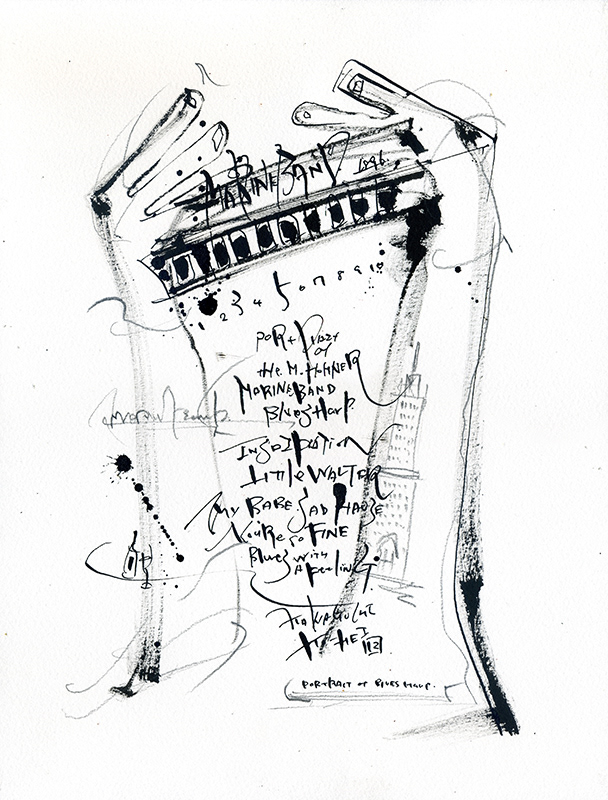 MARINE BAND 1896.
1 2 3 4 5 6 7 8 9 10
PORTRAIT
OF
tHe. M. HOHNER
MARINE BAND
Blues HaRP.
INSPIRATION
LittLe WALTER
My BABE. SAD HOUSE
YOU'Re so FINE
Blues with
A feeling.
PORTRAIT OF BLUES HARP.